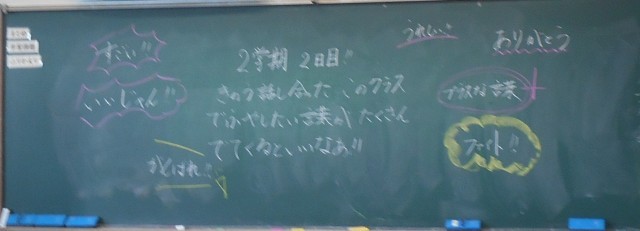 すごい!!
いいじゃん!!
がんばれ!!
2学期 2日目!!
きのう話し合った このクラス
でふやしたい言葉が たくさん
でてくるといいなあ!!
うれしい
ありがとう
プラスな言葉
ファイト!!